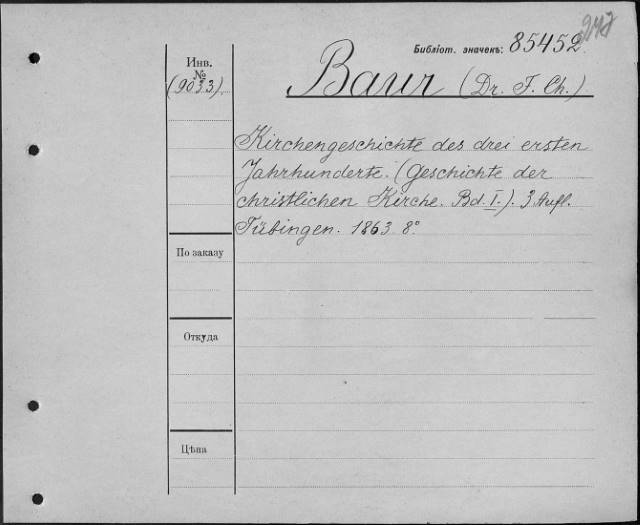 Библіот. значекъ: 85452
Инв.
№
(9033)
Baur (Dr. F. Ch.)
Kirchengeschichte des drei ersten
Jahrhunderte. (Geschichte der
christlichen Kirche. Bd. I.). 3 Aufl.
Tübingen. 1863. 8°
По заказу
Откуда
Цѣна